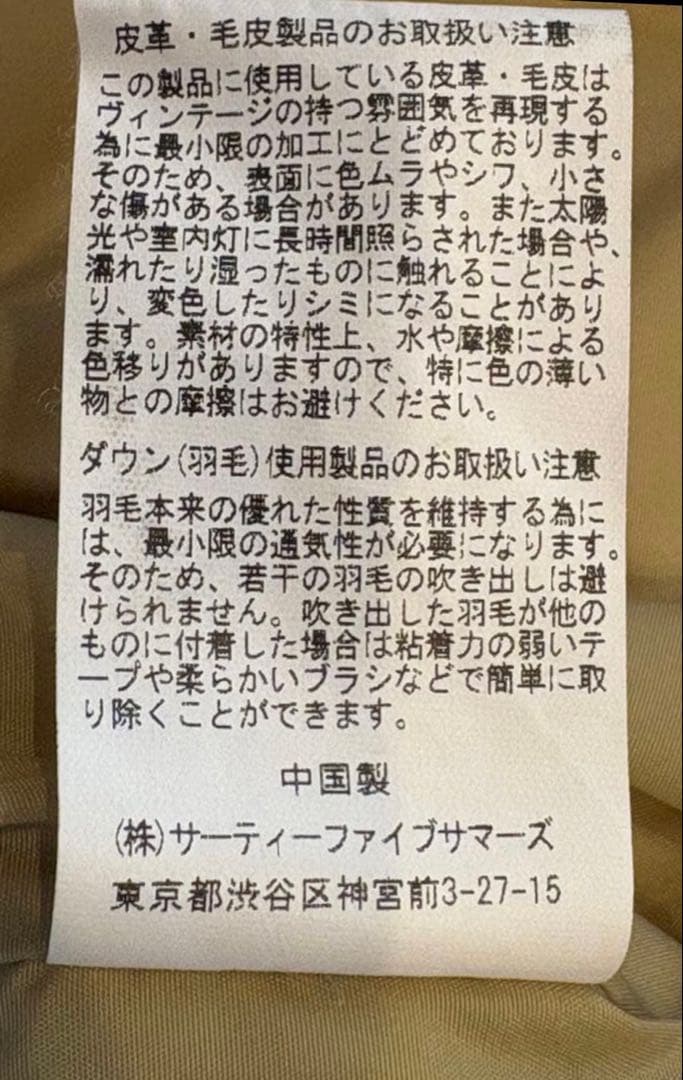 皮革・毛皮製品のお取扱い注意
この製品に使用している皮革・毛皮は
ヴィンテージの持つ雰囲気を再現する
為に最小限の加工にとどめております。
そのため、表面に色ムラやシワ、小さ
な傷がある場合があります。また太陽
光や室内灯に長時間照らされた場合や、
濡れたり湿ったものに触れることによ
り、変色したりシミになることがあり
ます。素材の特性上、水や摩擦による
色移りがありますので、特に色の薄い
物との摩擦はお避けください。
ダウン(羽毛)使用製品のお取扱い注意
羽毛本来の優れた性質を維持する為に
は、最小限の通気性が必要になります。
そのため、若干の羽毛の吹き出しは避
けられません。吹き出した羽毛が他の
ものに付着した場合は粘着力の弱いテ
ープや柔らかいブラシなどで簡単に取
り除くことができます。
中国製
(株)サーティーファイブサマーズ
東京都渋谷区神宮前3-27-15